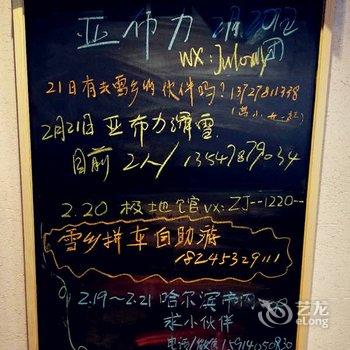 亚布力
团
wx:
21日有去雪乡的伙伴吗?
2月21日 亚布力滑雪
目前 2人/ 13547879034
2.20 极地馆 vx: ZJ--1220--
雪乡拼车自助游
18245329111
2.19～2.21 哈尔滨市内
求小伙伴
电话/微信
艺龙
eLong